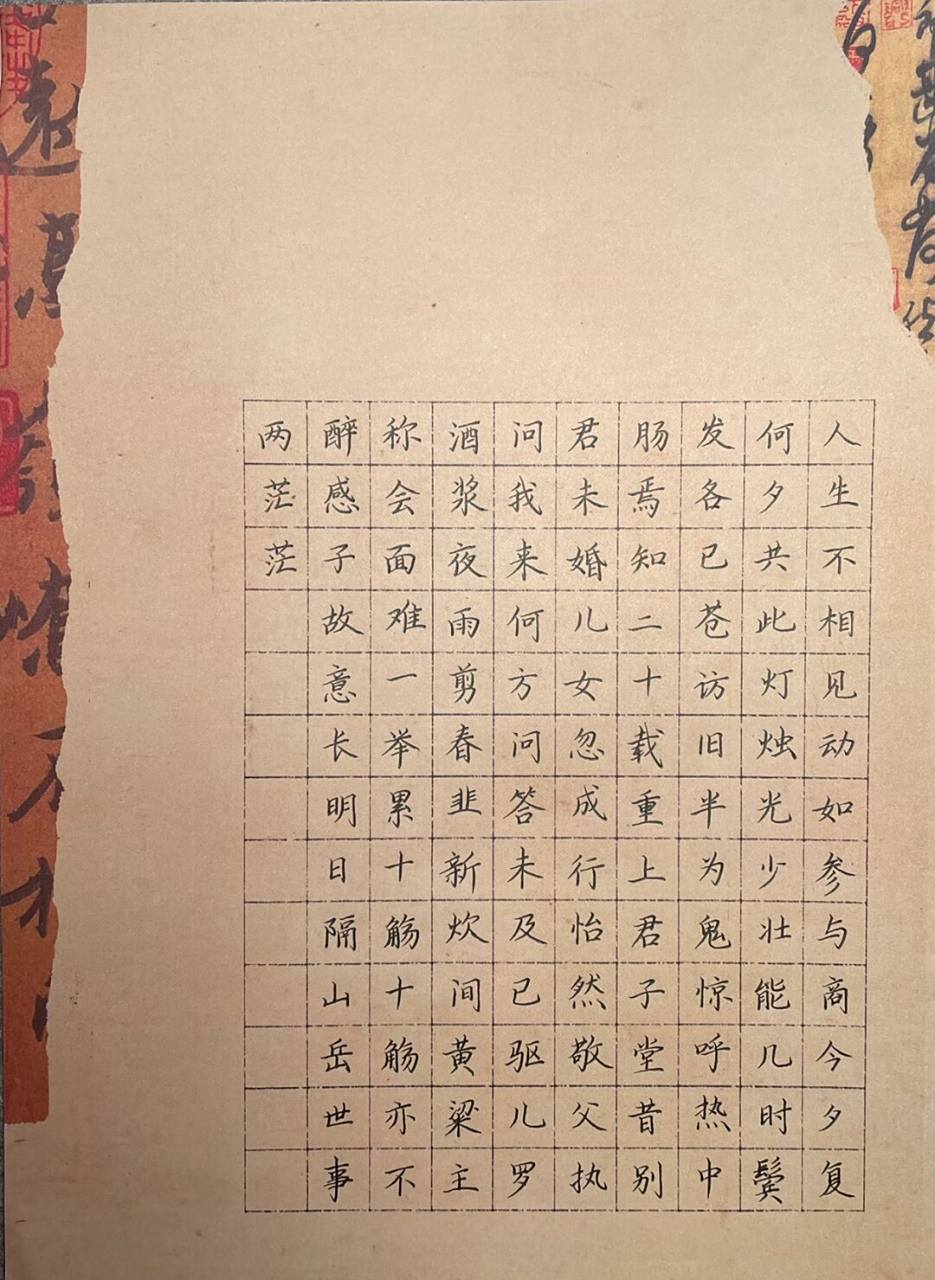 人生不相见动如参与商今夕复
何夕共此灯烛光少壮能几时鬓
发各已苍访旧半为鬼惊呼热中
肠焉知二十载重上君子堂昔别
君未婚儿女忽成行怡然敬父执
问我来何方问答未及已驱儿罗
酒浆夜雨剪春韭新炊间黄粱主
称会面难一举累十觞十觞亦不
醉感子故意长明日隔山岳世事
两茫茫